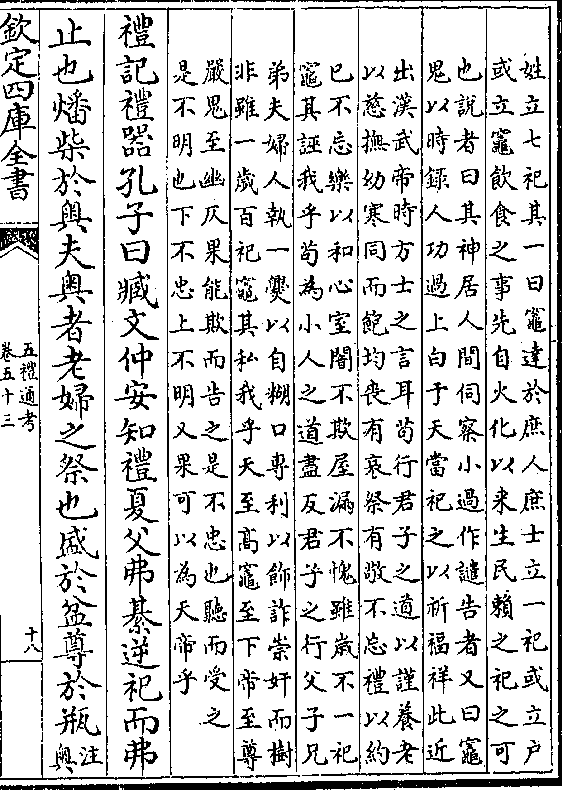 姓立七祀其一曰竈達於庶人庶士立一祀或立户
或立竈飲食之事先自火化以来生民賴之祀之可
也說者曰其神居人間伺察小過作譴告者又曰竈
鬼以時錄人功過上白于天當祀之以祈福祥此近
出漢武帝時方士之言耳苟行君子之道以謹養老
以慈撫幼寒同而飽均喪有哀祭有敬不忘禮以約
已不忘樂以和心室闇不欺屋漏不愧雖歳不一祀
竈其誣我乎苟為小人之道盡反君子之行父子兄
弟夫婦人執一爨以自糊口專利以飾詐崇奸而樹
非雖一歲百祀竈其私我乎天至高竈至下帝至尊
嚴鬼至幽仄果能欺而告之是不忠也聽而受之
是不明也下不忠上不明又果可以為天帝乎
禮記禮器孔子曰臧文仲安知禮夏父弗綦逆祀而弗
止也燔柴於奥夫奥者老婦之祭也盛於盆尊於瓶注奥
欽定四庫全書
五禮通考
卷五十三
十八